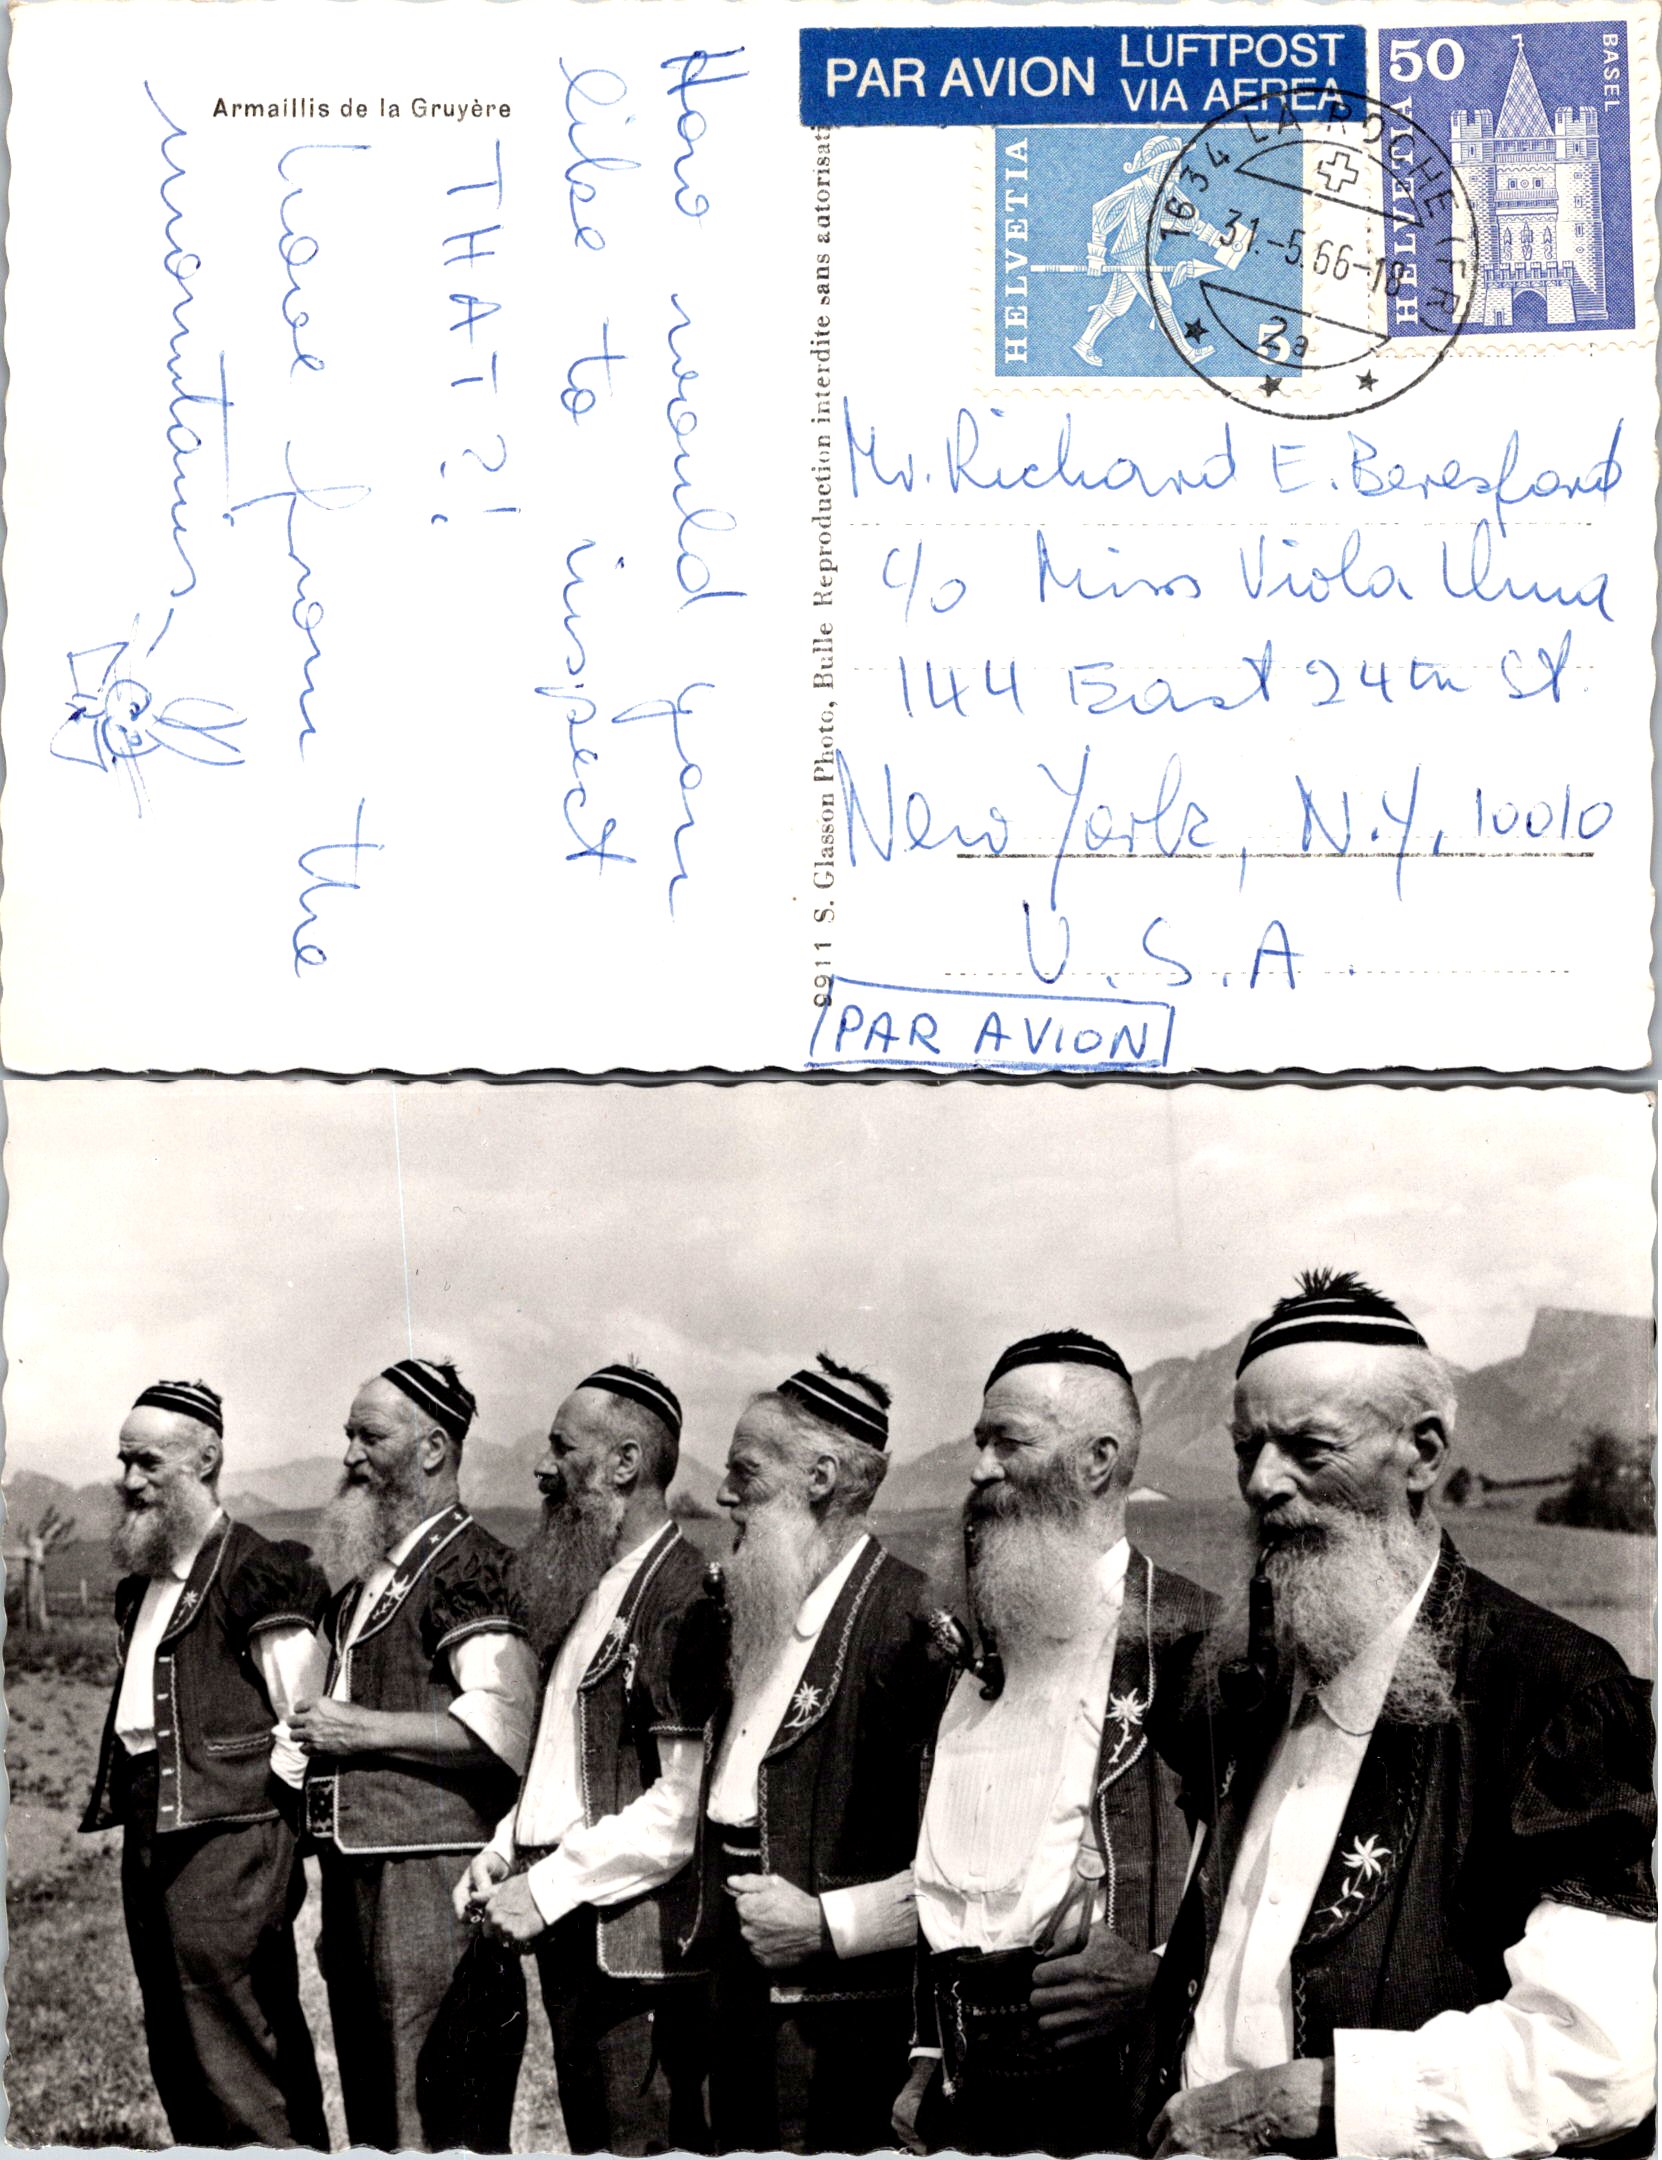 Armaillis de la Gruyère
How would you
like to inspect
THAT?!
Love from the
mountains,
9911 S. Glasson Photo, Bulle Reproduction interdite sans autorisati
PAR AVION
LUFTPOST
VIA AEREA
HELVETIA
5
50
BASEL
HELVETIA
1634 LA ROCHE (FR)
31.-5.66-18
2a
Mr. Richard E. Beresford
c/o Miss Viola
144 East 24th St.
New York, N.Y. 10010
U.S.A.
PAR AVION